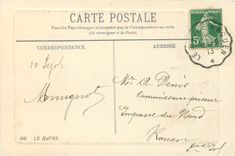 CARTE POSTALE
Tous les Pays étrangers n'acceptent pas la Correspondance au recto.
(Se renseigner à la Poste)
CORRESPONDANCE
ADRESSE
10 Sept
Mr A Denis
Commissaire priseur
Impasse du
Rouen
166 LE HAVRE.